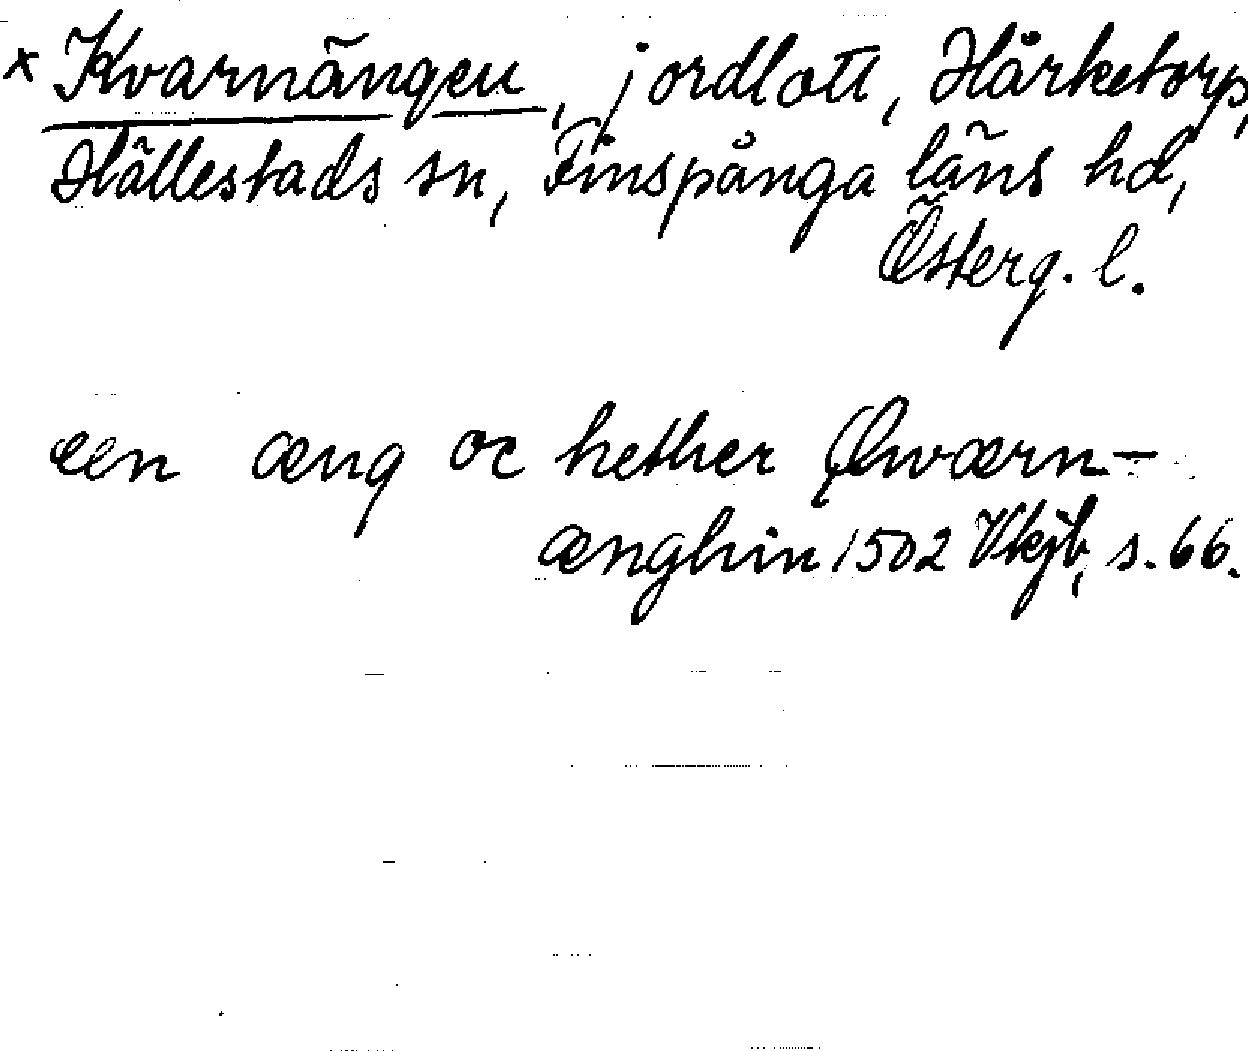 x Kvarnängen, jordlott, Hårketorp,
Hällestads sn, Finspånga läns hd,
Österg. l.
een æng oc hether Qwærn-
ænghin 1502 Vkjb, s. 66.